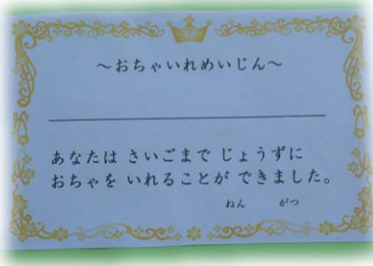 ～おちゃいれめいじん～
あなたは さいごまで じょうずに
おちゃを いれることが できました。
ねん がつ